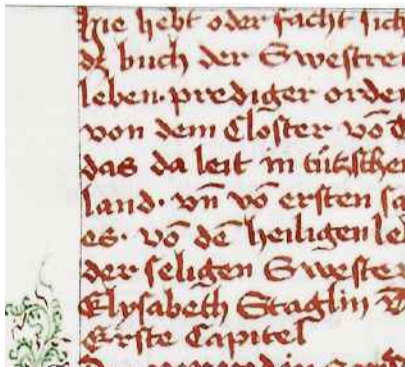 Hie hebt oder facht sich
dz buch der Swestren
leben prediger orden
von dem Closter vō
das da leit in tützschen
land. vn̄ vō ersten sa
es. vō dē heiligen le
der seligen Swester
Elysabeth Staglin
Erste Capitel